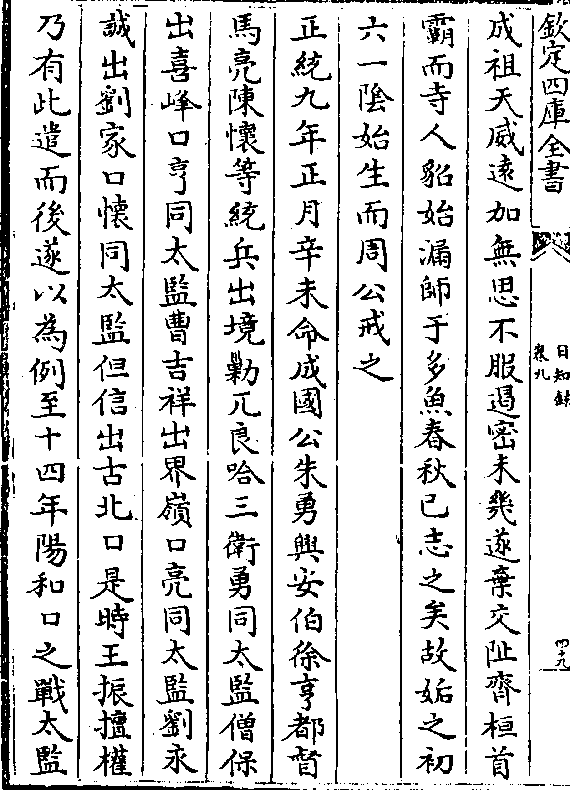 欽定四庫全書
日知錄
卷九
四十九
成祖天威遠加無思不服遏密未幾遂棄交阯齊桓首
霸而寺人貂始漏師于多魚春秋已志之矣故姤之初
六一陰始生而周公戒之
正統九年正月辛未命成國公朱勇興安伯徐亨都督
馬亮陳懷等統兵出境勦兀良哈三衛勇同太監僧保
出喜峰口亨同太監曹吉祥出界嶺口亮同太監劉永
誠出劉家口懷同太監但信出古北口是時王振擅權
乃有此遣而後遂以為例至十四年陽和口之戰太監